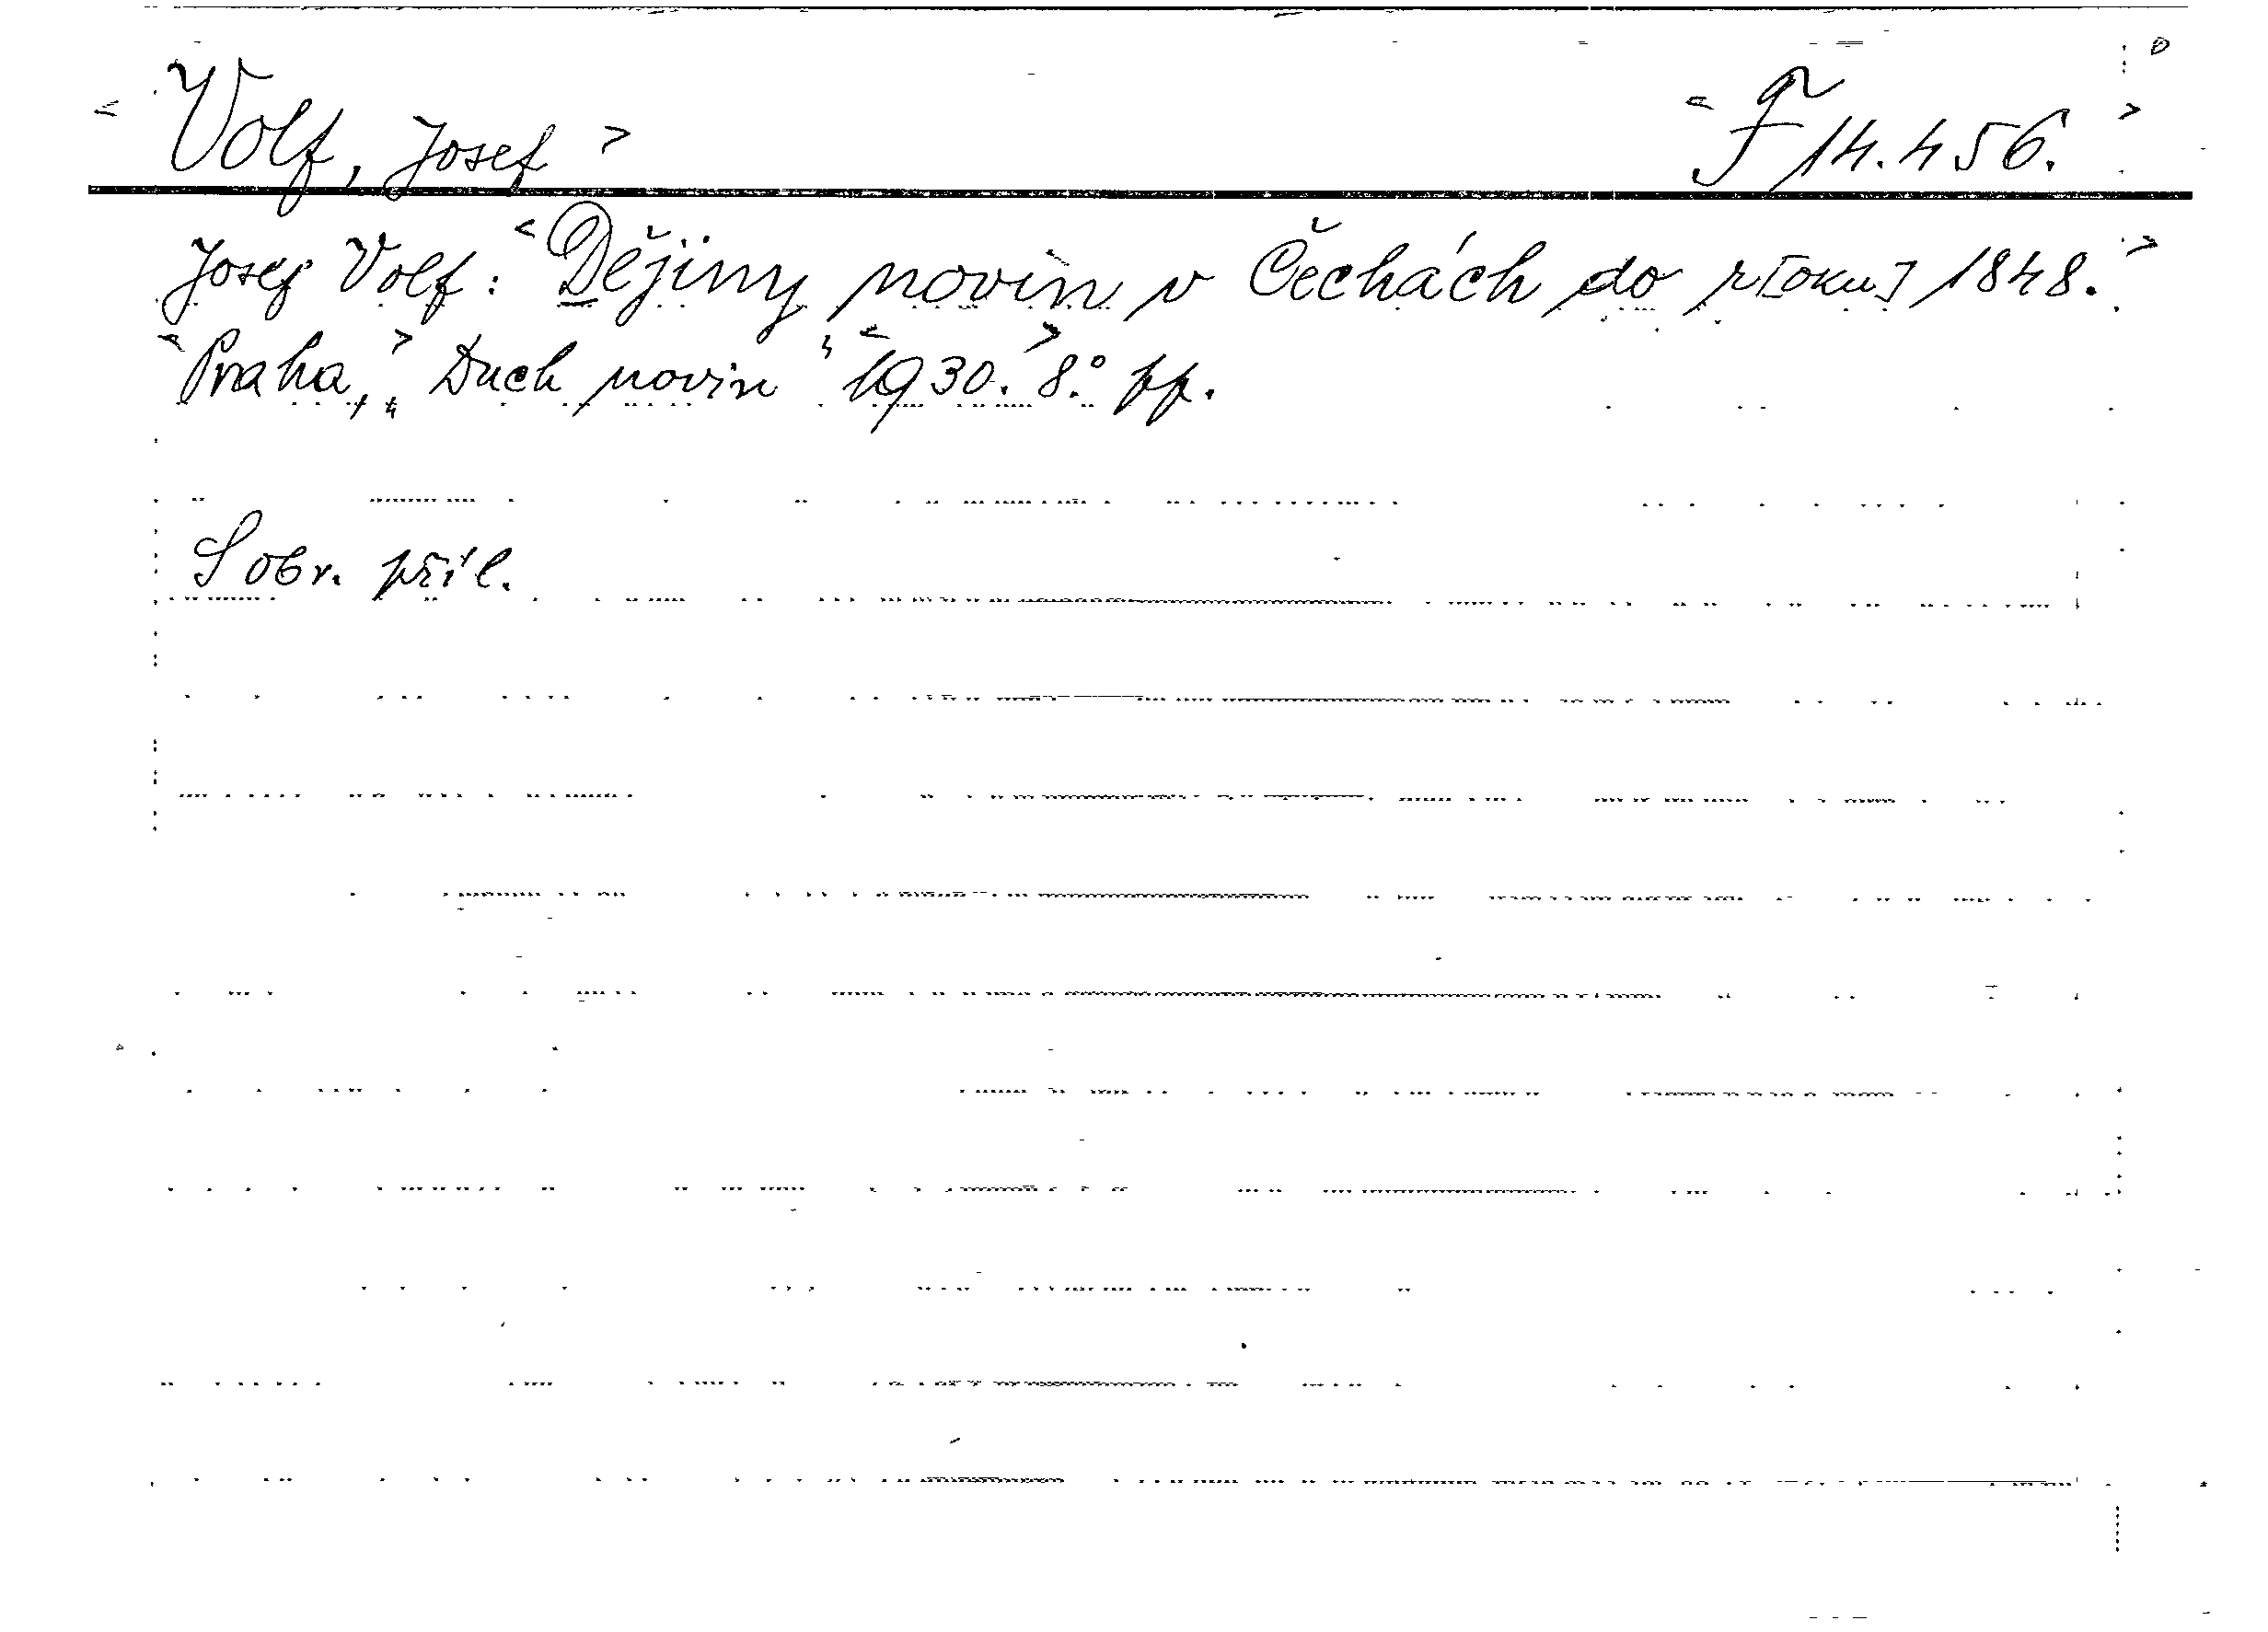 < Volf, Josef > < F 14.456. >
Josef Volf: < Dějiny novin v Čechách do r[oku] 1848. >
< Praha, > „Duch novin“ < 1930. > 8.° pp.
S obr. příl.